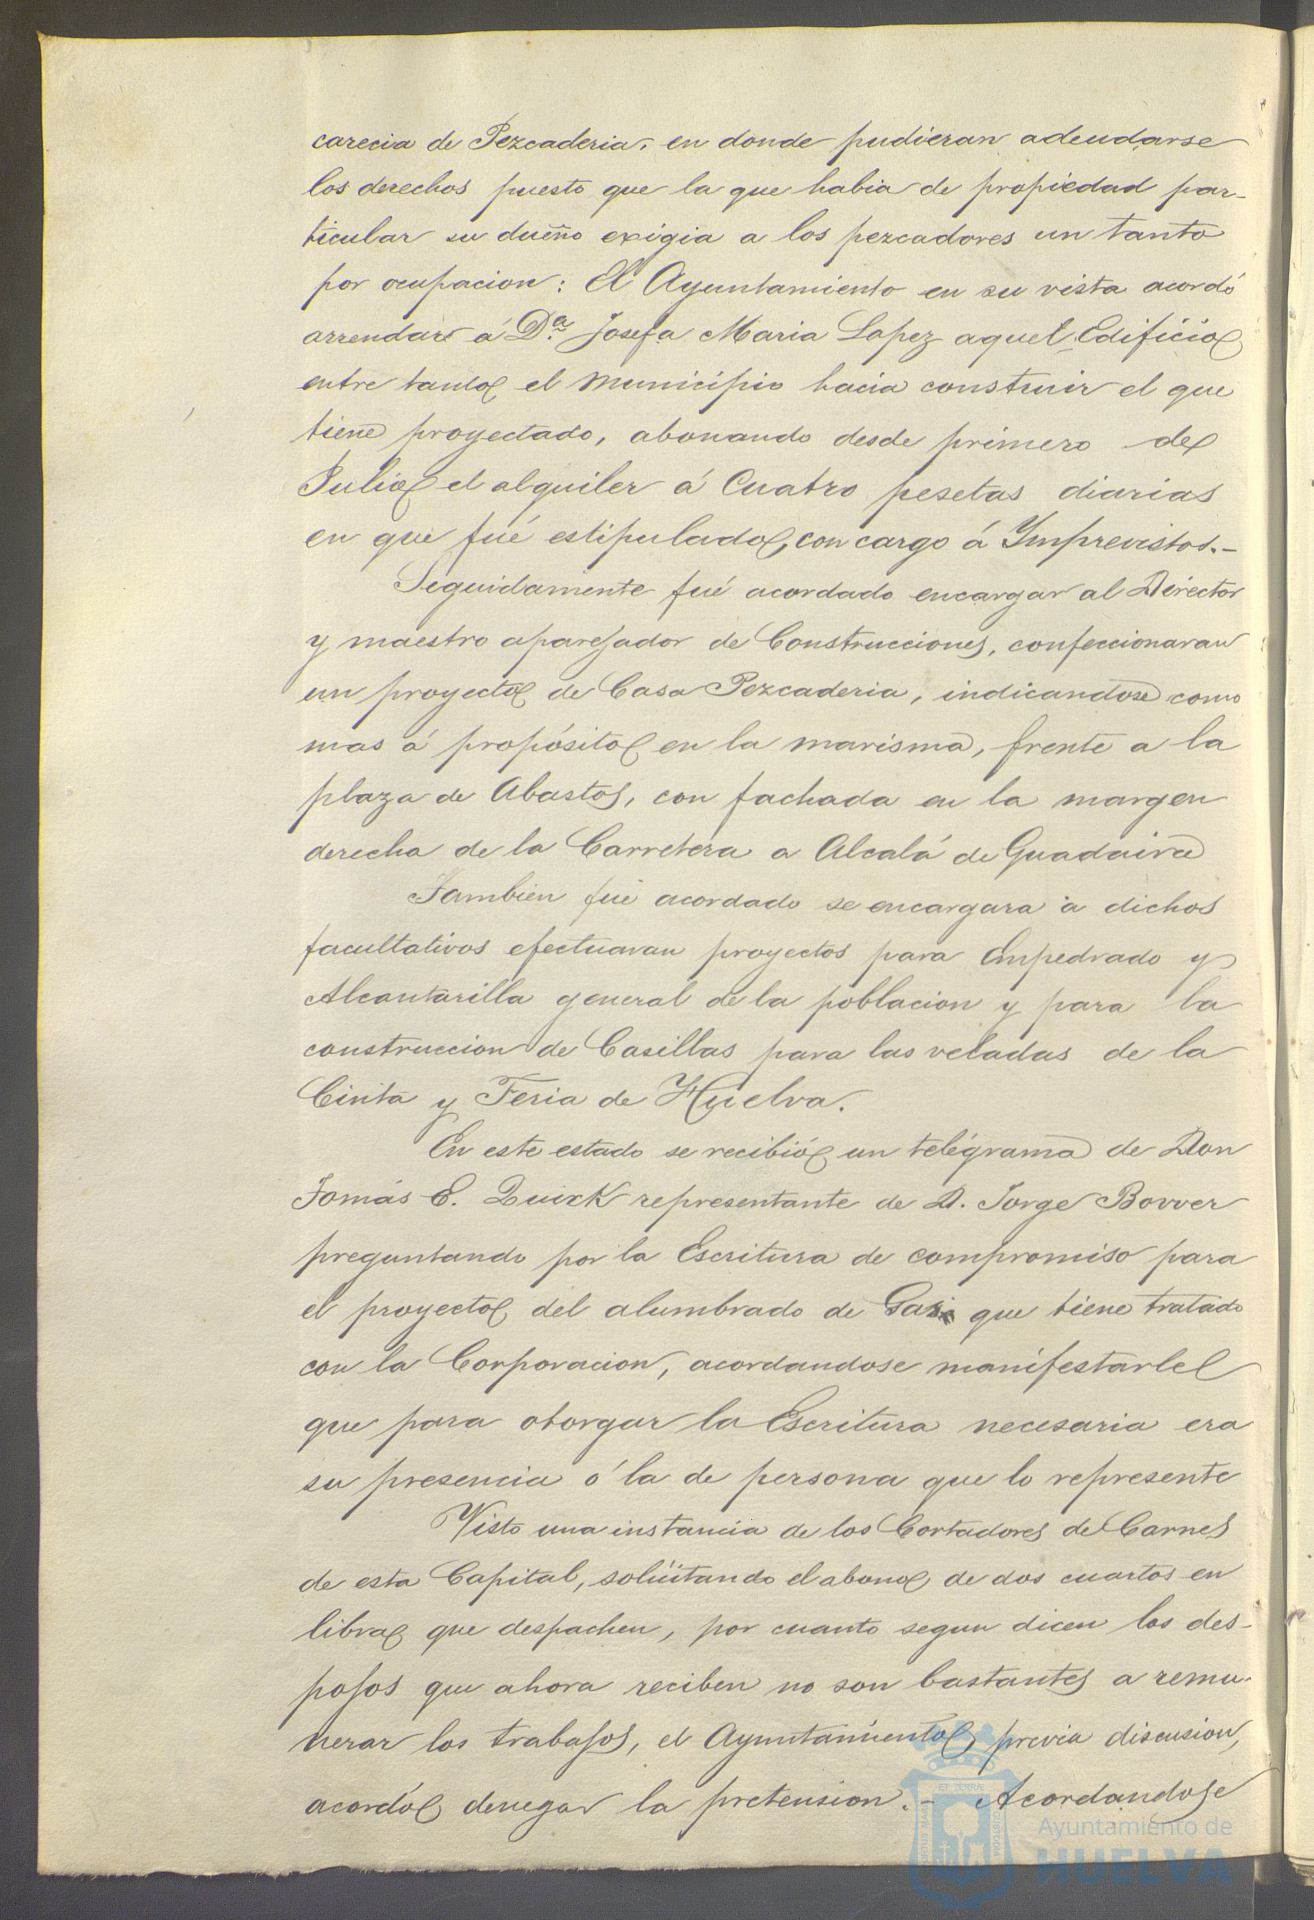 carecia de Pezcaderia, en donde pudieran adeudarse
los derechos puesto que la que habia de propiedad par-
ticular su dueño exigia a los pezcadores un tanto
por ocupacion: El Ayuntamiento en su vista acordó
arrendar á D.ª Josefa Maria Lopez aquel Edificio
entre tanto el municipio hacia construir el que
tiene proyectado, abonando desde primero de
Julio el alquiler á Cuatro pesetas diarias
en que fué estipulado, con cargo á Ymprevistos.-
Seguidamente fué acordado encargar al Director
y maestro aparejador de Construcciones, confeccionaran
un proyecto de Casa Pezcaderia, indicandose como
mas á propósito en la marisma, frente a la
plaza de Abastos, con fachada en la margen
derecha de la Carretera a Alcalá de Guadaira
Tambien fué acordado se encargara á dichos
facultativos efectuaran proyectos para Empedrado y
Alcantarilla general de la poblacion y para la
construccion de Casillas para las veladas de la
Cinta y Feria de Huelva.
En este estado se recibió un telégrama de Don
Tomás E. Quick representante de D. Jorge Bovver
preguntando por la Escritura de compromiso para
el proyecto del alumbrado de Gas que tiene tratado
con la Corporacion, acordandose manifestarle
que para otorgar la Escritura necesaria era
su presencia ó la de persona que lo represente
Visto una instancia de los Cortadores de Carnes
de esta Capital, solicitando el abono de dos cuartos en
libra que despachen, por cuanto segun dicen los des-
pojos que ahora reciben no son bastantes a remu-
nerar los trabajos, el Ayuntamiento, previa discusion,
acordó denegar la pretension.- Acordandose
Ayuntamiento de
HUELVA